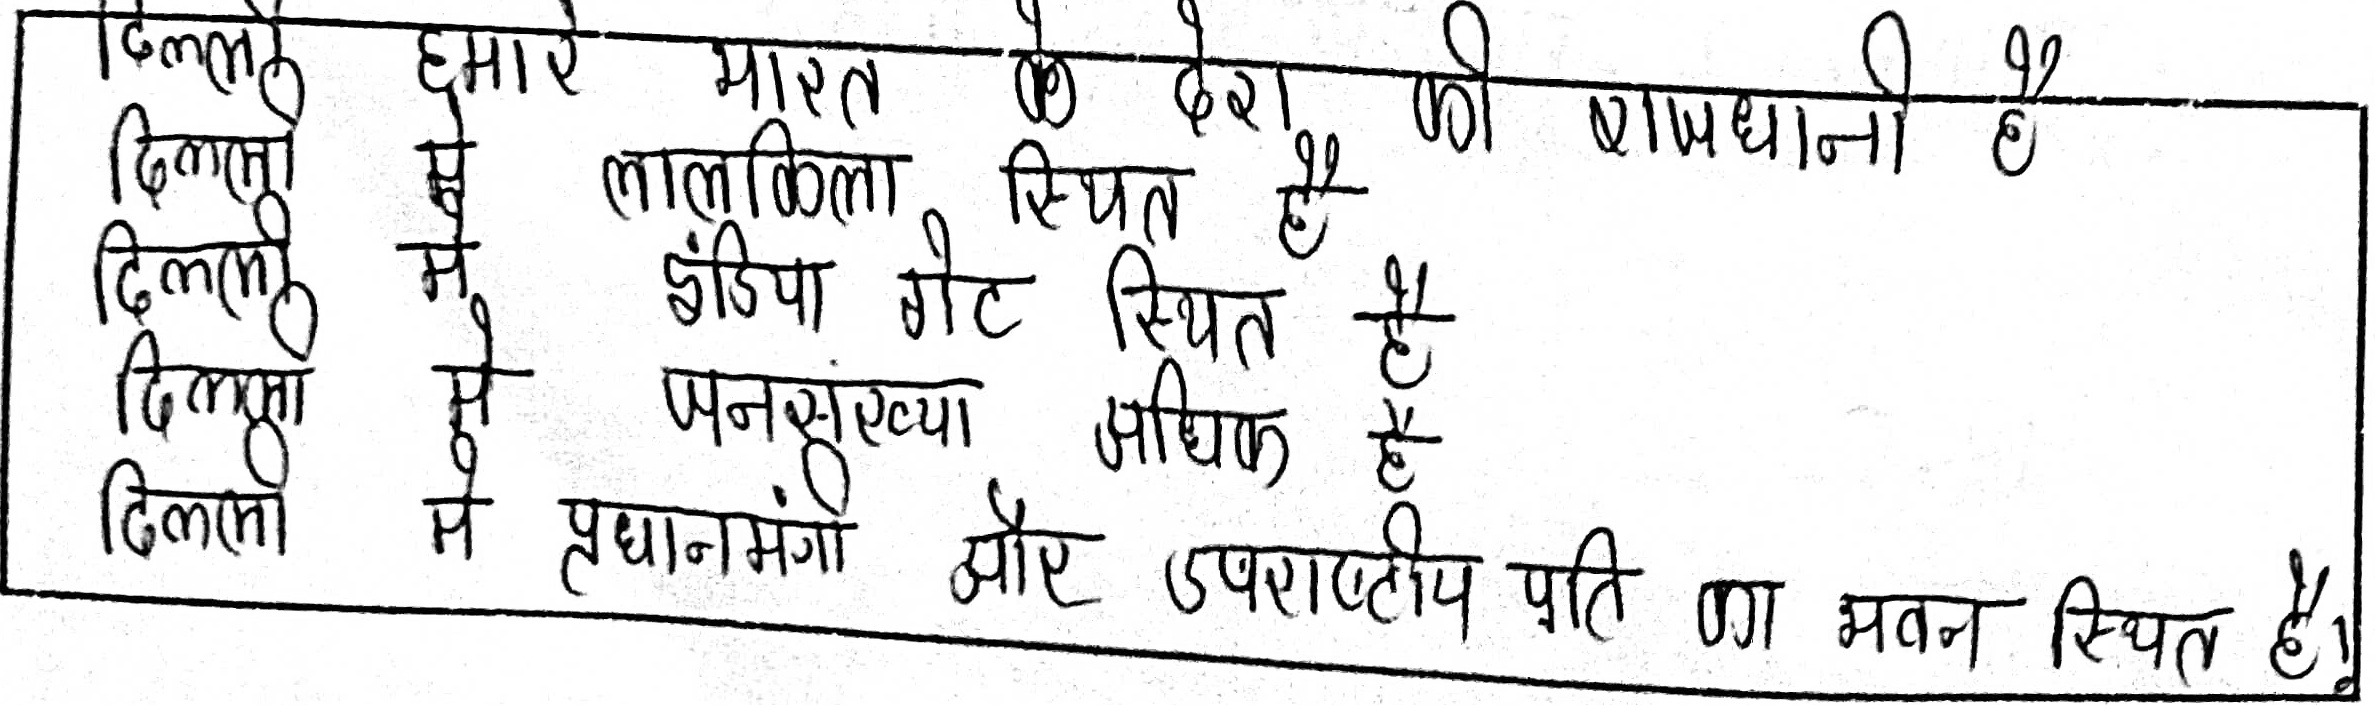 दिल्ली हमारे भारत के देश की राजधानी है
दिल्ली मे लालकिला स्थित है
दिल्ली मे इंडिया गेट स्थित है
दिल्ली मे जनसंख्या अधिक है
दिल्ली मे प्रधानमंत्री और उपराष्टीय पति का भवन स्थित है।